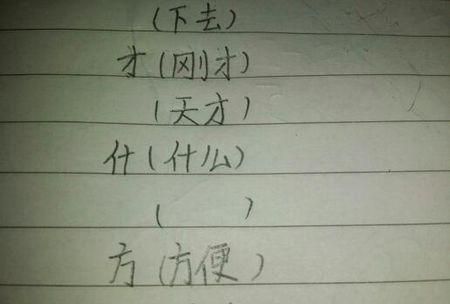 (下去)
才(刚才)
(天才)
什(什么)
(    )
方(方便)